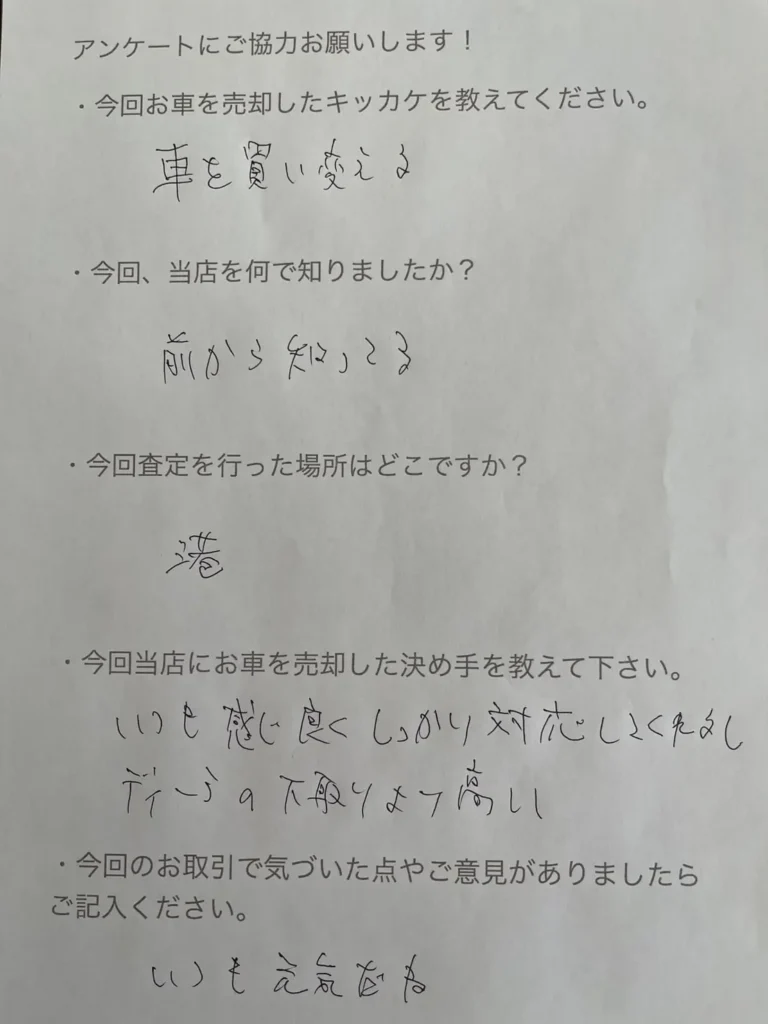 アンケートにご協力お願いします！
・今回お車を売却したキッカケを教えてください。
車を買い変える
・今回、当店を何で知りましたか？
前から知ってる
・今回査定を行った場所はどこですか？
港
・今回当店にお車を売却した決め手を教えて下さい。
いつも感じ良くしっかり対応してくれるし
ディーラの下取りより高い
・今回のお取引で気づいた点やご意見がありましたら
ご記入ください。
いつも元気だね